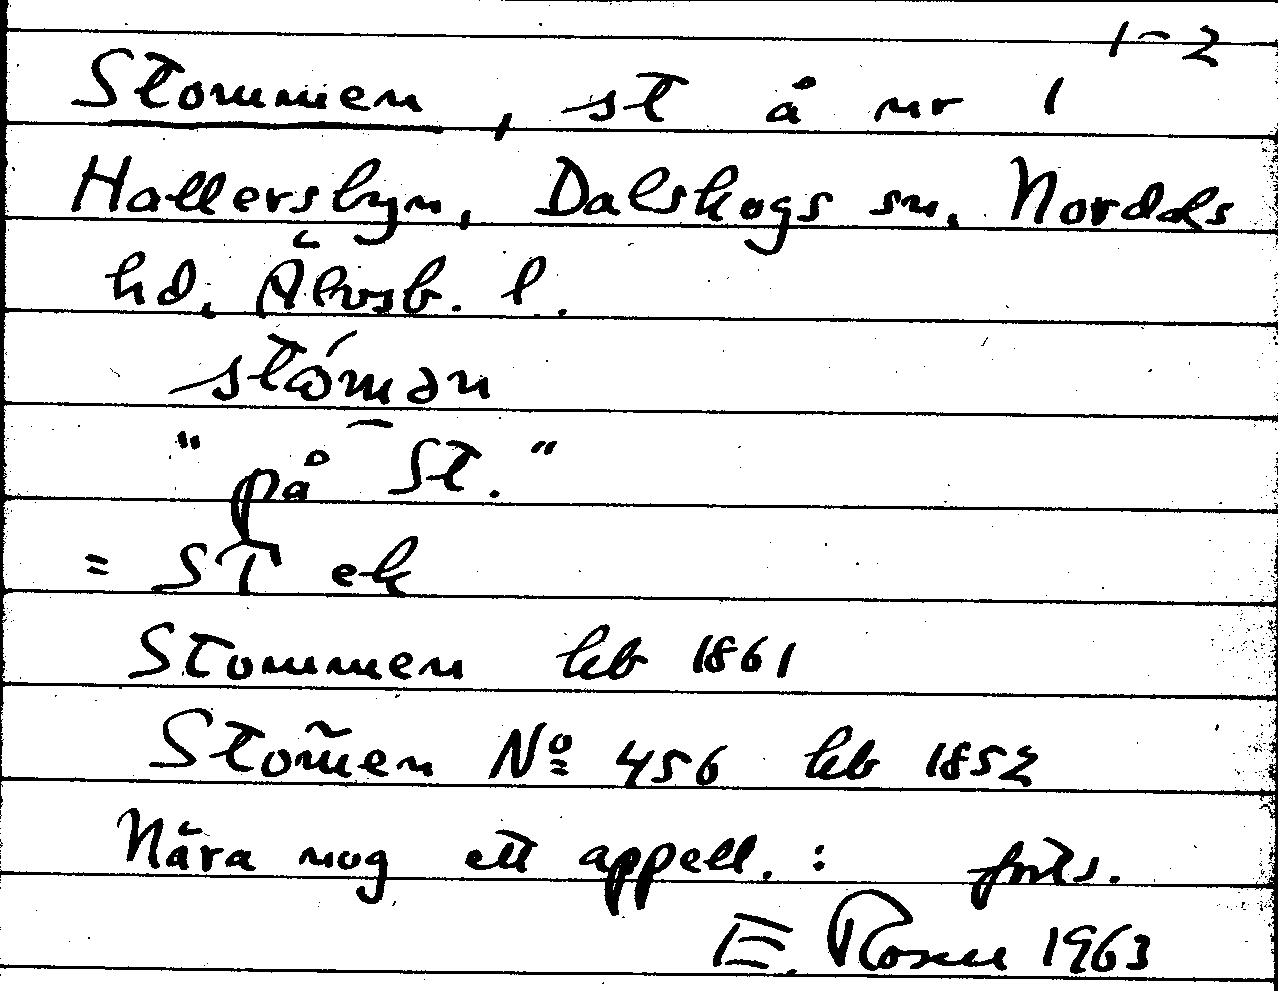 1-2
Stommen, st å nr 1
Hallersbyn, Dalskogs sn, Nordals
hd, Älvsb. l.
stómən
"på St."
= ST ek
Stommen hb 1861
Stom̃en Nº 456 hb 1852
Nära nog ett appell. : forts.
E. Rosell 1963